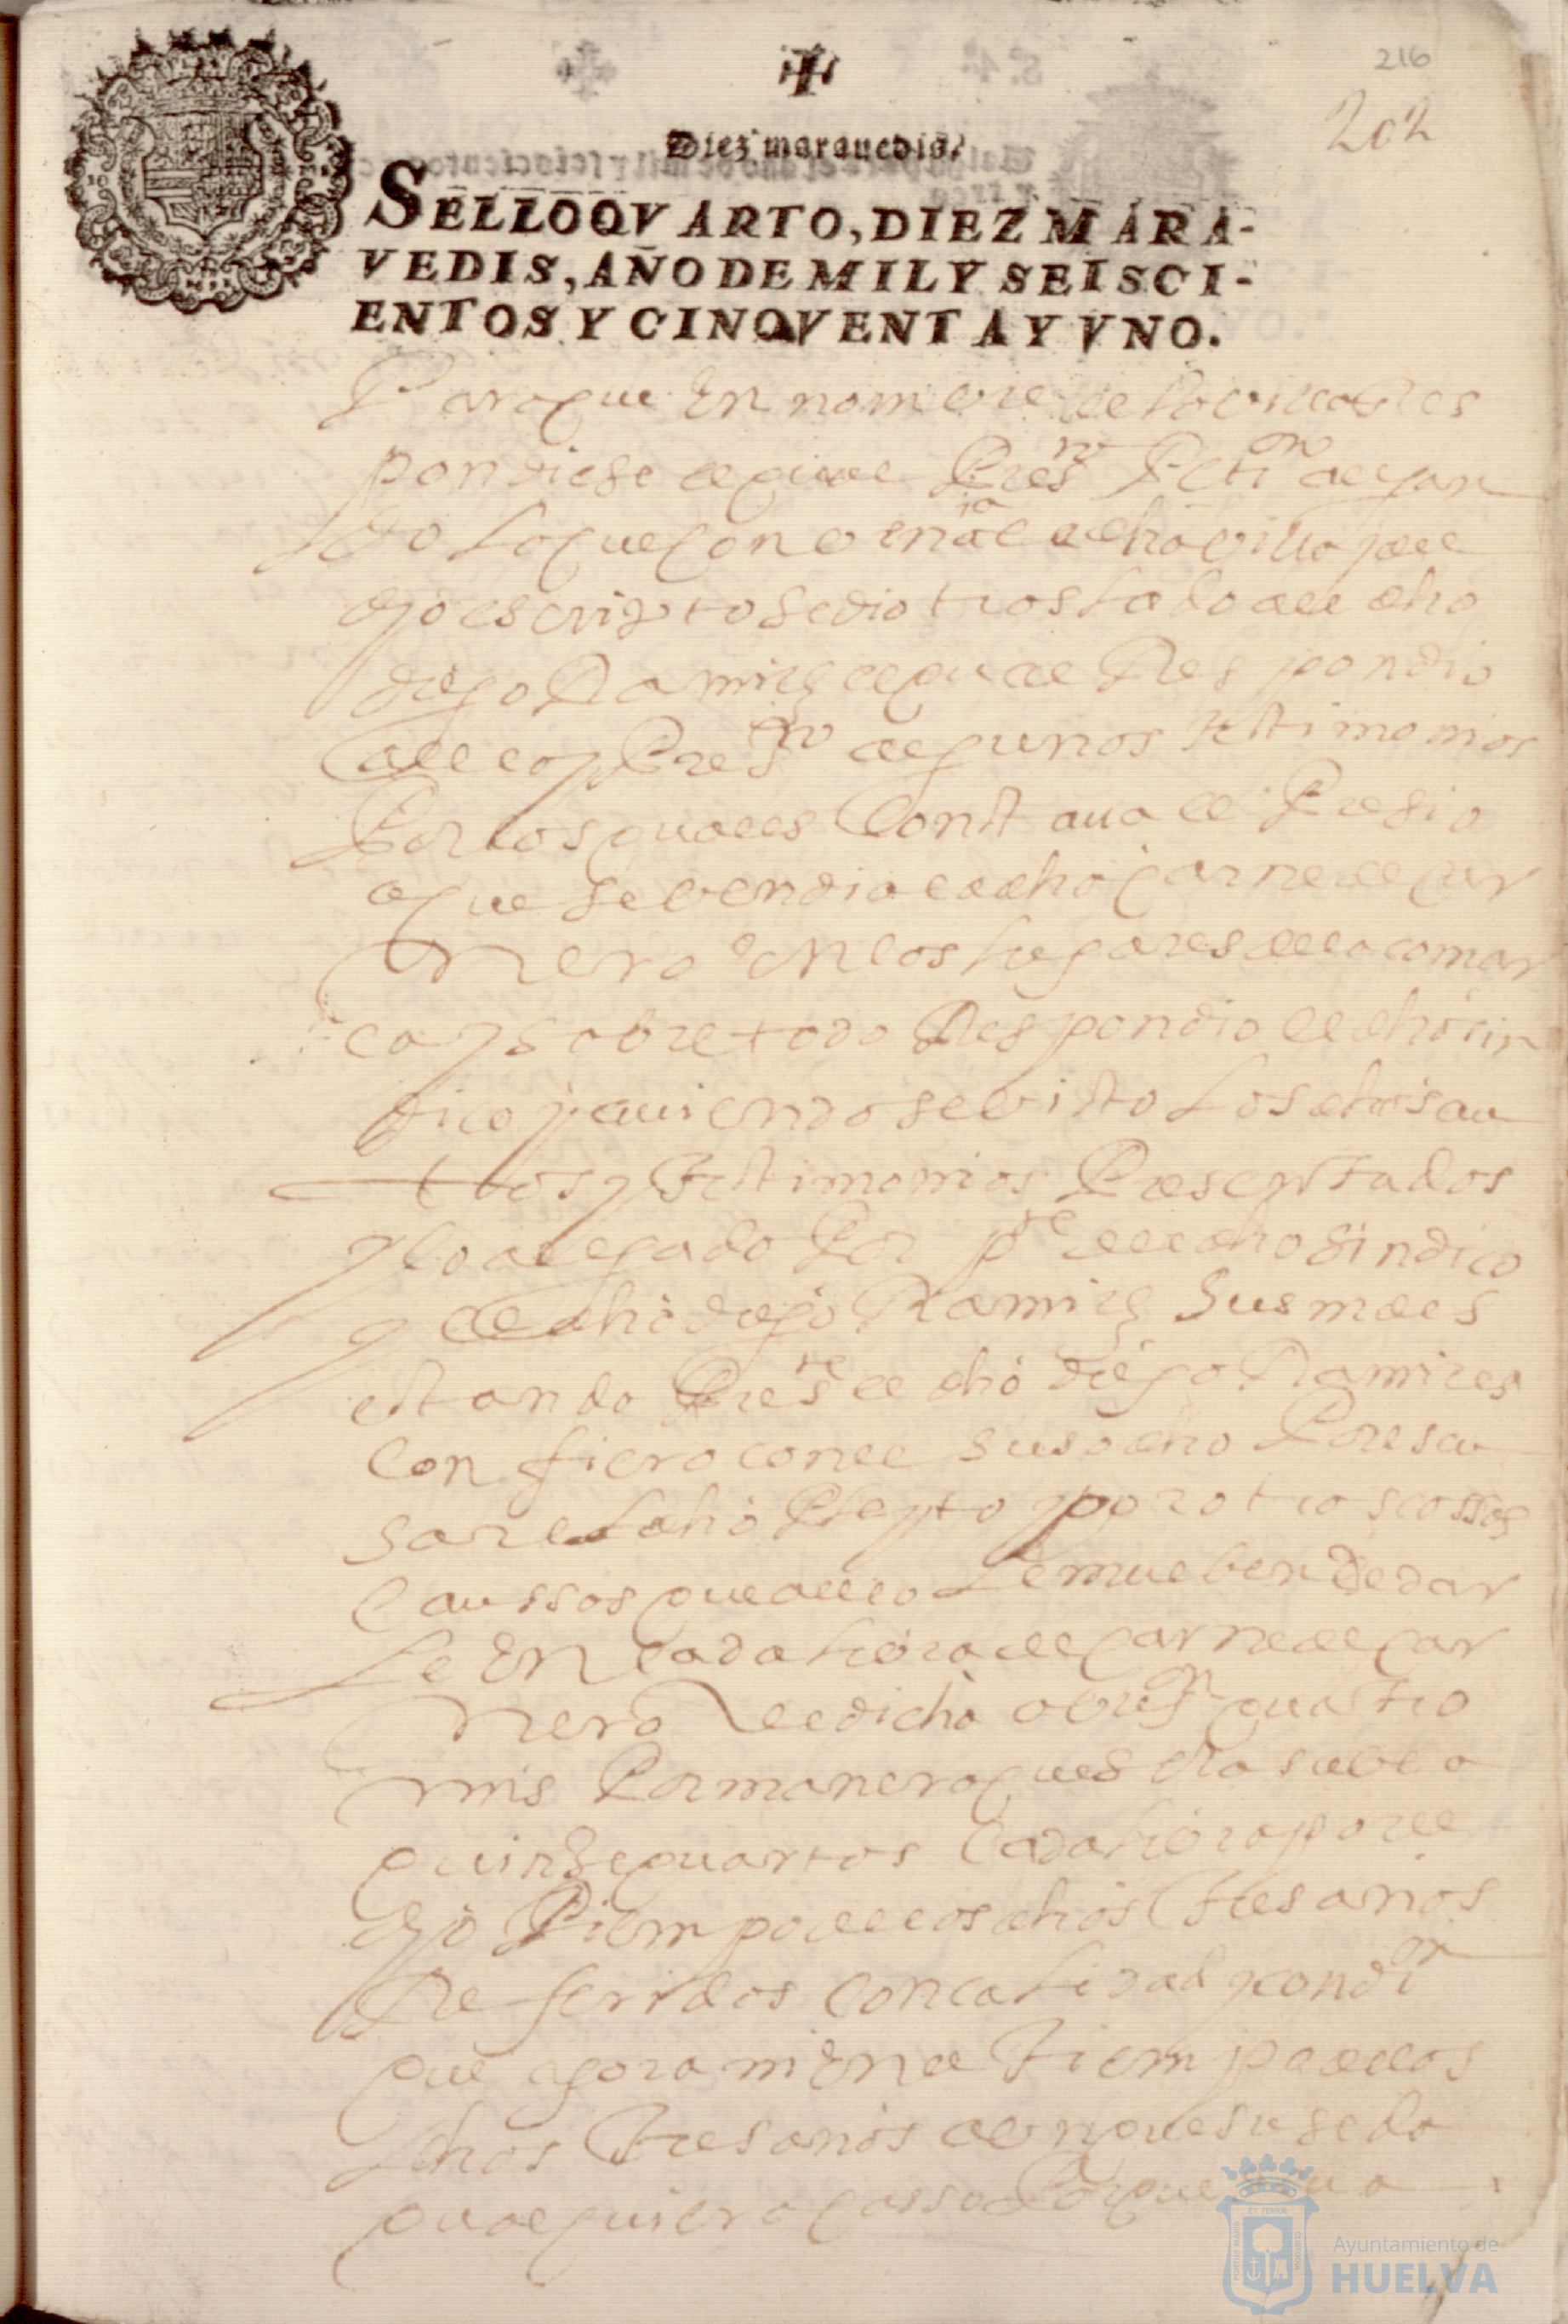 216
202
Diez marauedis.
SELLO QVARTO, DIEZ MARA-
VEDIS, AÑO DE MIL Y SEISCI-
ENTOS Y CINQVENTA Y VNO.
Para que En nombre de la villa Res
pondiese el qual Pressnto Petion alegan
do lo que conbenia a la dha villa y de
dho escripto se dio traslado al dho
diego Ramirez el qual Respondio
a ello y Pressto algunos testimonios
Por los quales Constaua el Presio
a que se bendia la dha carne de car
nero en los lugares de la comar
ca y sobre todo Respondio el dho sin
dico y auiendose visto los dhos au
tos y testimonios Presentados
y lo alegado Por pte del dho sindico
y el dho diego Ramirez Sus mdes
estando Preste el dho diego Ramires
Confiero con el susodho Por escu
sar el dho Pleyto y por otras cossas
Caussas que a ello le mueben De dar
le En cada libra de carne de car
nero de dicha obligon quatro
mrs Por manera que esta sube a
quinze quartos Cada libra por el
dho Tiempo de los dhos tres años
Referidos con calidad y condion
que agora ni En el tiempo de los
dhos tres años aunque suseda
qualquiera casso Porque
Ayuntamiento de
HUELVA